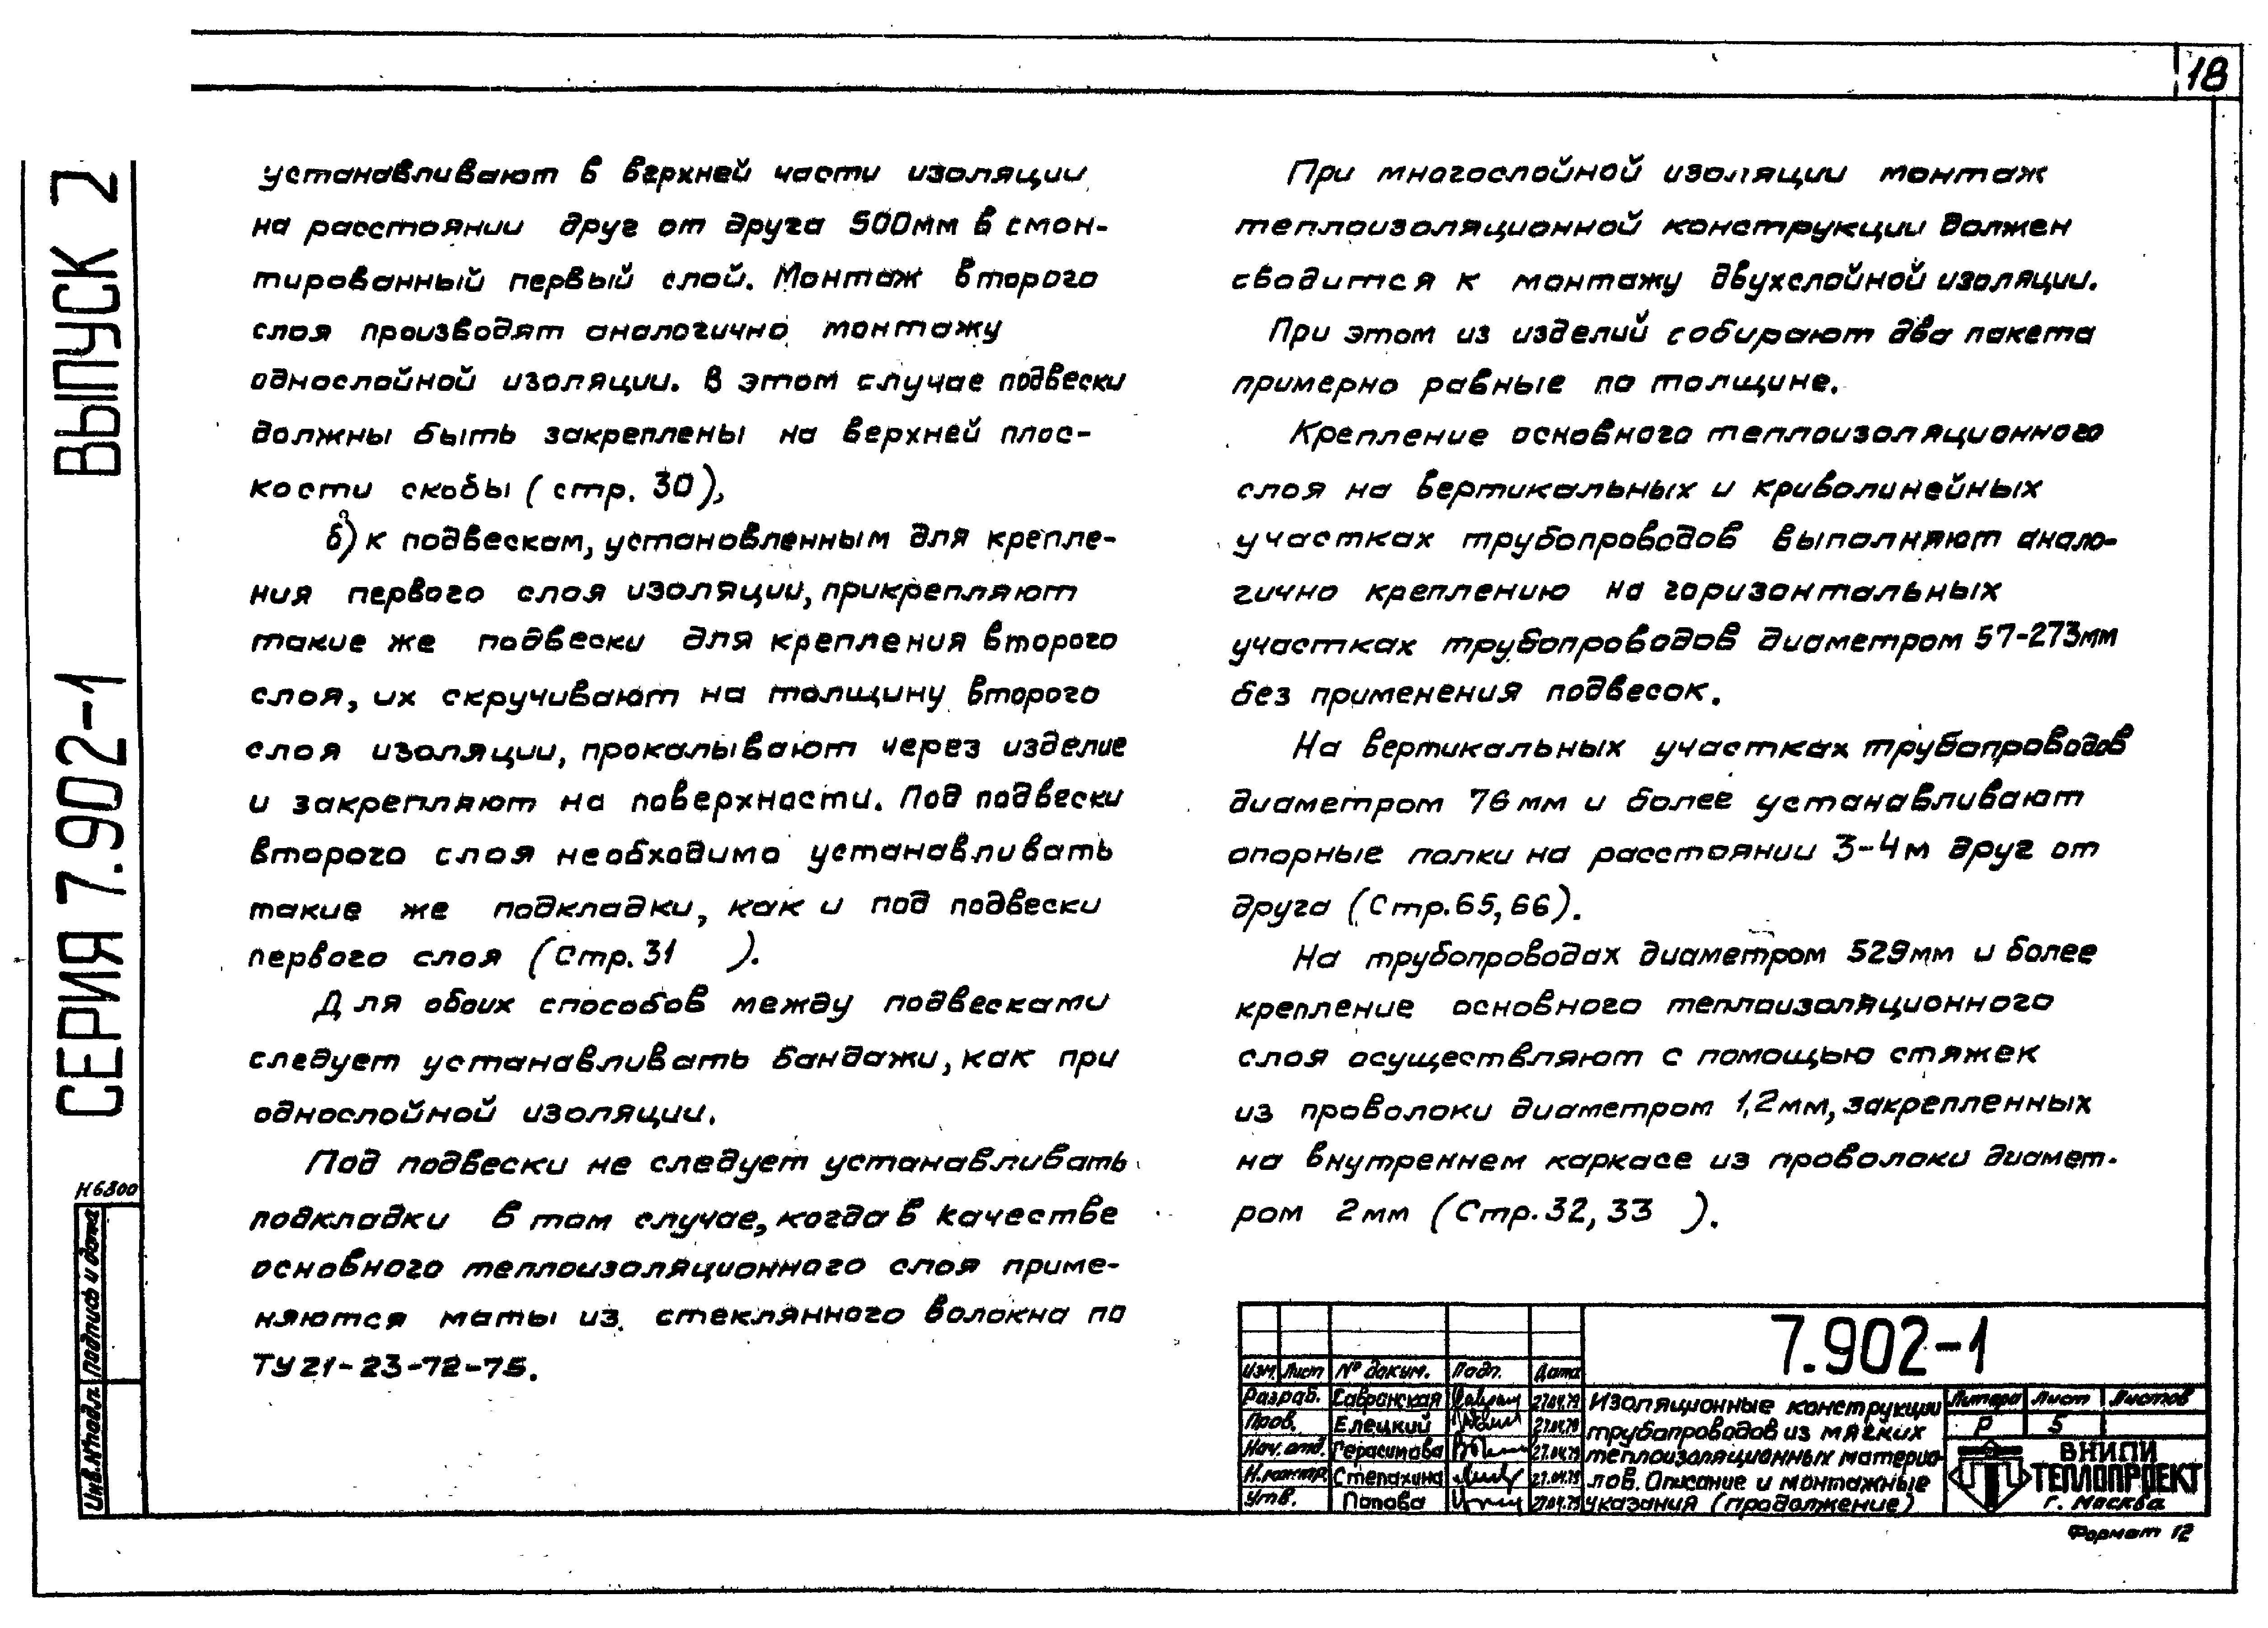 18
СЕРИЯ 7.902-1 ВЫПУСК 2
устанавливают в верхней части изоляции
на расстоянии друг от друга 500мм в смон-
тированный первый слой. Монтаж второго
слоя производят аналогично монтажу
однослойной изоляции. В этом случае подвески
должны быть закреплены на верхней плос-
кости скобы (стр. 30),
б) к подвескам, установленным для крепле-
ния первого слоя изоляции, прикрепляют
такие же подвески для крепления второго
слоя, их скручивают на толщину второго
слоя изоляции, прокалывают через изделие
и закрепляют на поверхности. Под подвески
второго слоя необходимо устанавливать
такие же подкладки, как и под подвески
первого слоя (Стр. 31 ).
Для обоих способов между подвесками
следует устанавливать бандажи, как при
однослойной изоляции.
Под подвески не следует устанавливать
подкладки в том случае, когда в качестве
основного теплоизоляционного слоя приме-
няются маты из стеклянного волокна по
ТУ 21-23-72-75.
При многослойной изоляции монтаж
теплоизоляционной конструкции должен
сводится к монтажу двухслойной изоляции.
При этом из изделий собирают два пакета
примерно равные по толщине.
Крепление основного теплоизоляционного
слоя на вертикальных и криволинейных
участках трубопроводов выполняют анало-
гично креплению на горизонтальных
участках трубопроводов диаметром 57-273мм
без применения подвесок.
На вертикальных участках трубопроводов
диаметром 76 мм и более устанавливают
опорные полки на расстоянии 3-4м друг от
друга (Стр. 65, 66).
На трубопроводах диаметром 529мм и более
крепление основного теплоизоляционного
слоя осуществляют с помощью стяжек
из проволоки диаметром 1,2мм, закрепленных
на внутреннем каркасе из проволоки диамет-
ром 2мм (Стр. 32, 33 ).
Н6300
Инв.№подл. Подпись и дата
7.902-1
Изм. Лист № докум. Подп. Дата
Разраб. Савранская 27.04.79
Пров. Елецкий 27.04.79
Нач. отд. Герасимова 27.04.79
Н.контр. Степахина 27.04.79
Утв. Попова 27.04.79
Изоляционные конструкции
трубопроводов из мягких
теплоизоляционных материа-
лов. Описание и монтажные
указания (продолжение)
Литера Лист Листов
Р 5
ВНИПИ
ТЕПЛОПРОЕКТ
г. Москва
Формат 12